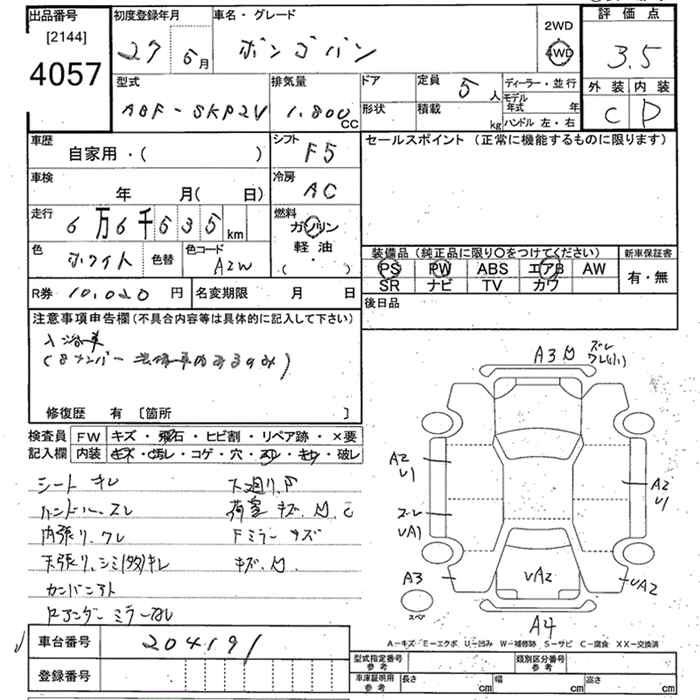 出品番号 初度登録年月 車名・グレード 評価点
[2144]
4057
27 6月 ボンゴバン 2WD 4WD 3.5
型式 排気量 ドア 定員 5人 ディーラー・並行 外装 内装
ABF-SKP2V 1,800cc 形状 積載 kg モデル年式 年 C D
ハンドル 左・右
車歴 シフト セールスポイント (正常に機能するものに限ります)
自家用・( ) F5
車検 冷房
年 月( 日) AC
走行 6万6千535km 燃料
ガソリン
軽油
・( )
色 ホワイト 色替 色コード A2W
装備品(純正品に限り○をつけてください) 新車保証書
PS PW ABS エアB AW 有・無
SR ナビ TV カワ
R券 10,020円 名変期限 月 日 後日品
注意事項申告欄(不具合内容等は具体的に記入して下さい)
修復歴 有 [箇所 ]
A3
検査員 FW キズ・飛石・ヒビ割・リペア跡・×要
記入欄 内装 キズ・汚レ・コゲ・穴・スレ・キレ・破レ
シート キレ
ハンドル、スレ 荷室 キズ、凹、C
内張り、ワレ Fミラー キズ
天張り、シミ(多)キレ キズ、凹
A2
U1
A2
U1
ズレ
UA1
A3 UA2 UA2
スペア
A4
A-キズ E-エクボ U-凹み W-補修跡 S-サビ C-腐食 XX-交換済
車台番号 204191
登録番号
型式指定番号 参考 類別区分番号 参考
車庫証明用 参考 長さ cm 幅 cm 高さ cm